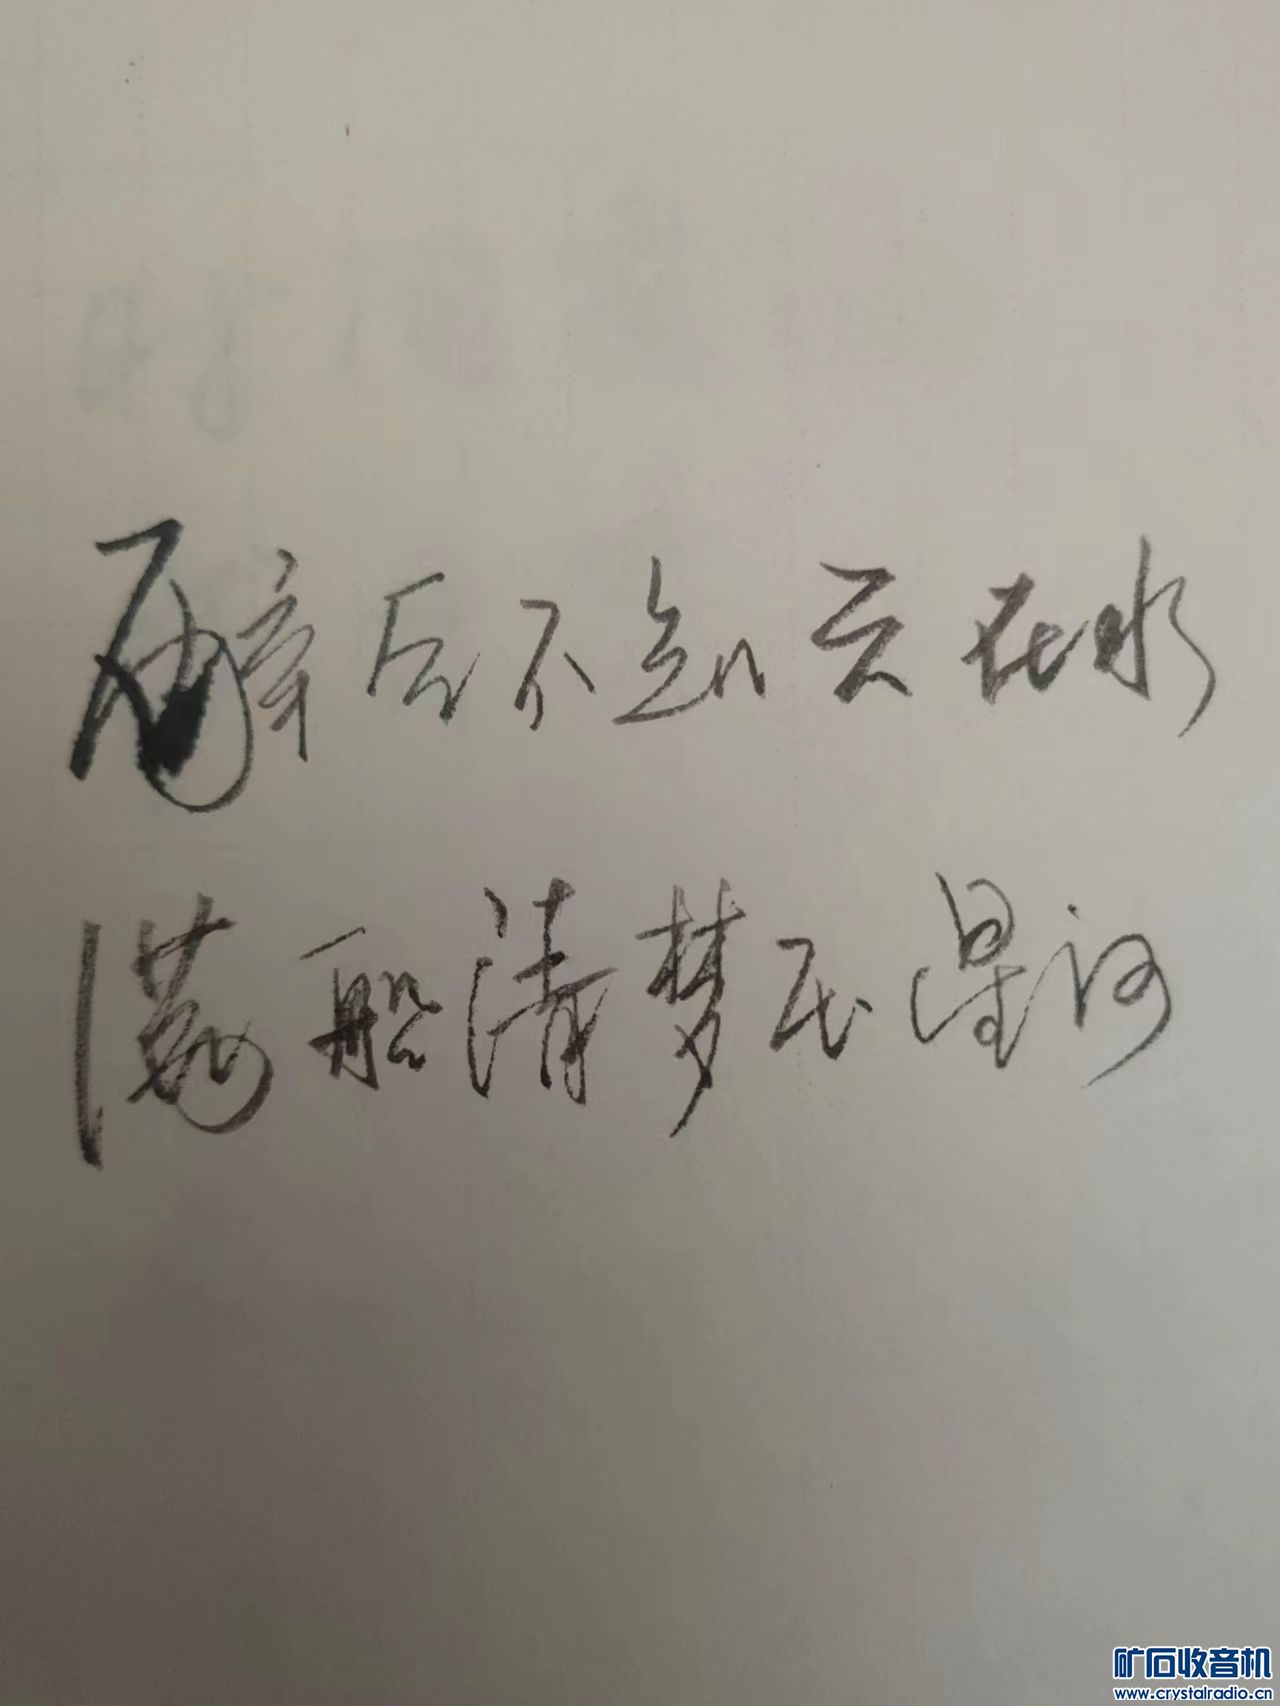 醉后不知天在水
满船清梦压星河
矿石收音机
www.crystalradio.cn